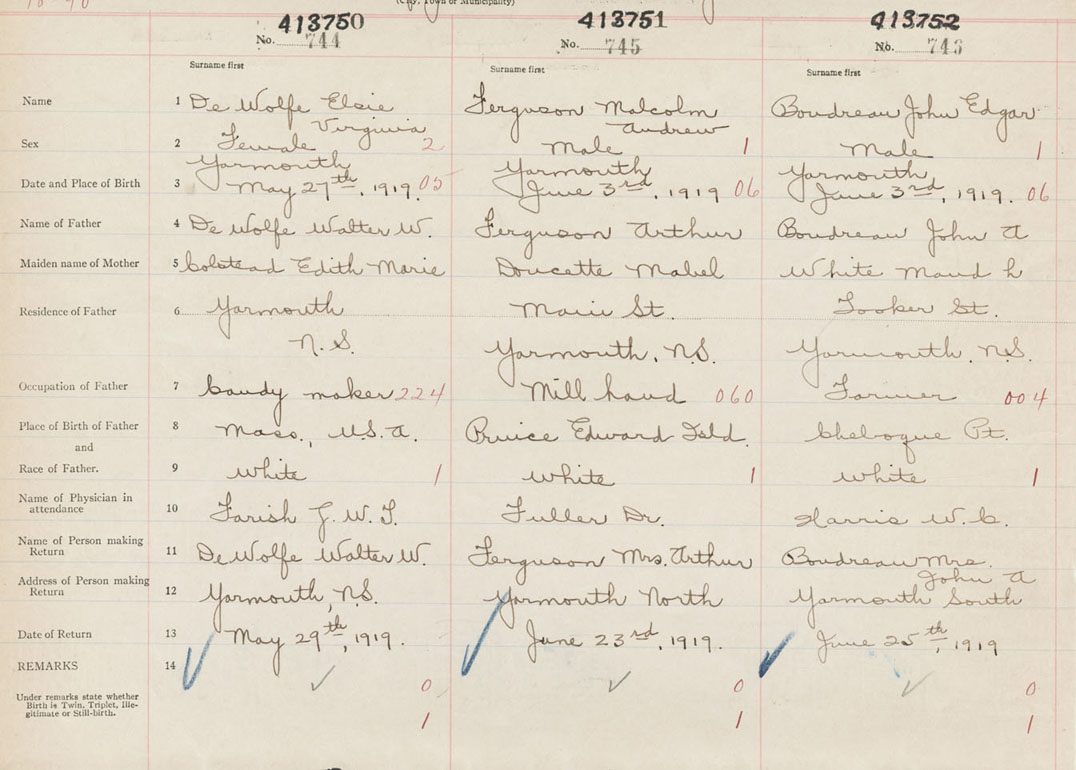 18-90
(City, Town or Municipality)
413750 413751 413752
No. 744 No. 745 No. 746
Surname first Surname first Surname first
Name 1 De Wolfe Elsie Ferguson Malcolm Boudreau John Edgar
Virginia Andrew
Sex 2 Female 2 Male 1 Male 1
Yarmouth Yarmouth Yarmouth
Date and Place of Birth 3 May 27th, 1919. 05 June 3rd, 1919 06 June 3rd, 1919. 06
Name of Father 4 De Wolfe Walter W. Ferguson Arthur Boudreau John A
Maiden name of Mother 5 Colstead Edith Marie Doucette Mabel White Maud h
Residence of Father 6 Yarmouth Main St. Tooker St.
N.S. Yarmouth, N.S. Yarmouth, N.S.
Occupation of Father 7 Candy maker 224 Mill hand 060 Farmer 004
Place of Birth of Father 8 Mass., U.S.A. Prince Edward Isld. Chebogue Pt.
and
Race of Father. 9 White 1 White 1 White 1
Name of Physician in
attendance 10 Farish G.W.T. Fuller Dr. Harris W.C.
Name of Person making
Return 11 De Wolfe Walter W. Ferguson Mrs. Arthur Boudreau Mrs.
John A
Address of Person making
Return 12 Yarmouth, N.S. Yarmouth North Yarmouth South
Date of Return 13 May 29th, 1919. June 23rd, 1919. June 25th, 1919
REMARKS 14
0 0 0
Under remarks state whether
Birth is Twin, Triplet, Ille-
gitimate or Still-birth.
1 1 1